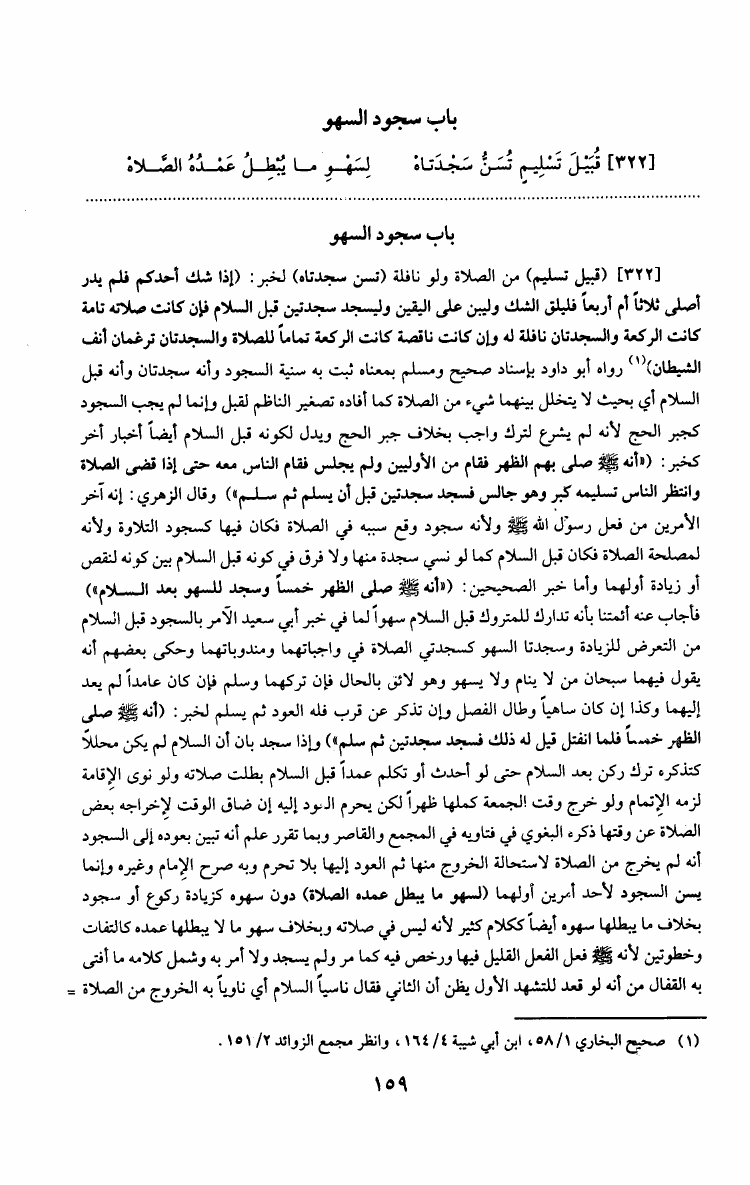 باب سجود السهو
[٣٢٢] قُبَيْلَ تَسْلِيمٍ تُسَنُّ سَجْدَتاهْ لِسَهْوِ ما يُبْطِلُ عَمْدُهُ الصَّلاهْ
باب سجود السهو
[٣٢٢] (قبيل تسليم) من الصلاة ولو نافلة (تسن سجدتاه) لخبر: (إذا شك أحدكم فلم يدر
أصلى ثلاثاً أم أربعاً فليلق الشك وليبن على اليقين وليسجد سجدتين قبل السلام فإن كانت صلاته تامة
كانت الركعة والسجدتان نافلة له وإن كانت ناقصة كانت الركعة تماماً للصلاة والسجدتان ترغمان أنف
الشيطان)(١) رواه أبو داود بإسناد صحيح ومسلم بمعناه ثبت به سنية السجود وأنه سجدتان وأنه قبل
السلام أي بحيث لا يتخلل بينهما شيء من الصلاة كما أفاده تصغير الناظم لقبل وإنما لم يجب السجود
كجبر الحج لأنه لم يشرع لترك واجب بخلاف جبر الحج ويدل لكونه قبل السلام أيضاً أخبار أخر
كخبر: («أنه ﷺ صلى بهم الظهر فقام من الأوليين ولم يجلس فقام الناس معه حتى إذا قضى الصلاة
وانتظر الناس تسليمه كبر وهو جالس فسجد سجدتين قبل أن يسلم ثم سلم») وقال الزهري: إنه آخر
الأمرين من فعل رسول الله ﷺ ولأنه سجود وقع سببه في الصلاة فكان فيها كسجود التلاوة ولأنه
لمصلحة الصلاة فكان قبل السلام كما لو نسي سجدة منها ولا فرق في كونه قبل السلام بين كونه لنقص
أو زيادة أولهما وأما خبر الصحيحين: («أنه ﷺ صلى الظهر خمساً وسجد للسهو بعد السلام»)
فأجاب عنه أئمتنا بأنه تدارك للمتروك قبل السلام سهواً لما في خبر أبي سعيد الآمر بالسجود قبل السلام
من التعرض للزيادة وسجدتا السهو كسجدتي الصلاة في واجباتهما ومندوباتهما وحكى بعضهم أنه
يقول فيهما سبحان من لا ينام ولا يسهو وهو لائق بالحال فإن تركهما وسلم فإن كان عامداً لم يعد
إليهما وكذا إن كان ساهياً وطال الفصل وإن تذكر عن قرب فله العود ثم يسلم لخبر: (أنه ﷺ صلى
الظهر خمساً فلما انفتل قيل له ذلك فسجد سجدتين ثم سلم») وإذا سجد بان أن السلام لم يكن محللاً
كتذكره ترك ركن بعد السلام حتى لو أحدث أو تكلم عمداً قبل السلام بطلت صلاته ولو نوى الإقامة
لزمه الإتمام ولو خرج وقت الجمعة كملها ظهراً لكن يحرم العود إليه إن ضاق الوقت لإخراجه بعض
الصلاة عن وقتها ذكره البغوي في فتاويه في المجمع والقاصر وبما تقرر علم أنه تبين بعوده إلى السجود
أنه لم يخرج من الصلاة لاستحالة الخروج منها ثم العود إليها بلا تحرم وبه صرح الإمام وغيره وإنما
يسن السجود لأحد أمرين أولهما (لسهو ما يبطل عمده الصلاة) دون سهوه كزيادة ركوع أو سجود
بخلاف ما يبطلها سهوه أيضاً ككلام كثير لأنه ليس في صلاته وبخلاف سهو ما لا يبطلها عمده كالتفات
وخطوتين لأنه ﷺ فعل الفعل القليل فيها ورخص فيه كما مر ولم يسجد ولا أمر به وشمل كلامه ما أفتى
به القفال من أنه لو قعد للتشهد الأول يظن أن الثاني فقال ناسياً السلام أي ناوياً به الخروج من الصلاة =
(١) صحيح البخاري ٥٨/١، ابن أبي شيبة ١٦٤/٤، وانظر مجمع الزوائد ١٥١/٢.
١٥٩